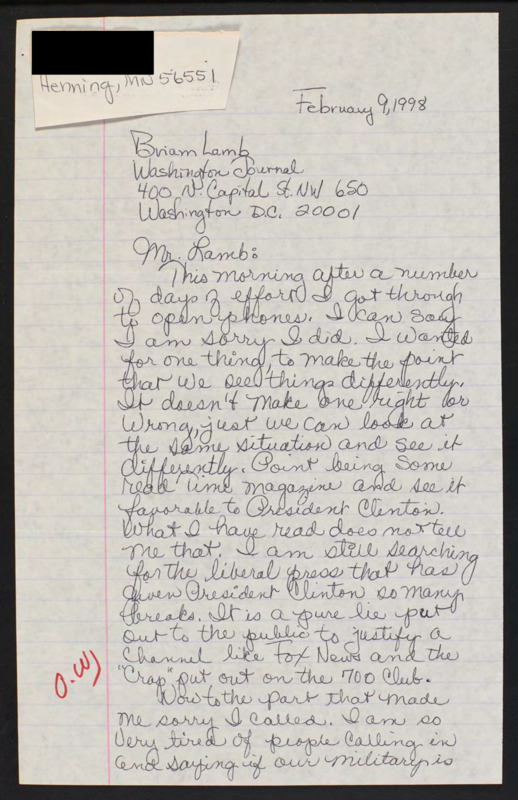 Henning, MN 56551
February 9, 1998
Briam Lamb
Washington Journal
400 N. Capital St. NW 650
Washington D.C. 20001
Mr. Lamb:
This morning after a number
of days of effort I got through
to open phones. I can say
I am sorry I did. I wanted
for one thing, to make the point
that we see things differently.
It doesn't make one right or
wrong, just we can look at
the same situation and see it
differently. Point being some
read Time magazine and see it
favorable to President Clinton.
What I have read does not tell
me that. I am still searching
for the liberal press that has
given President Clinton so many
breaks. It is a pure lie put
out to the public to justify a
channel like Fox News and the
"Crap" put out on the 700 Club.
Now to the part that made
me sorry I called. I am so
very tired of people calling in
and saying if our military is
O.W)